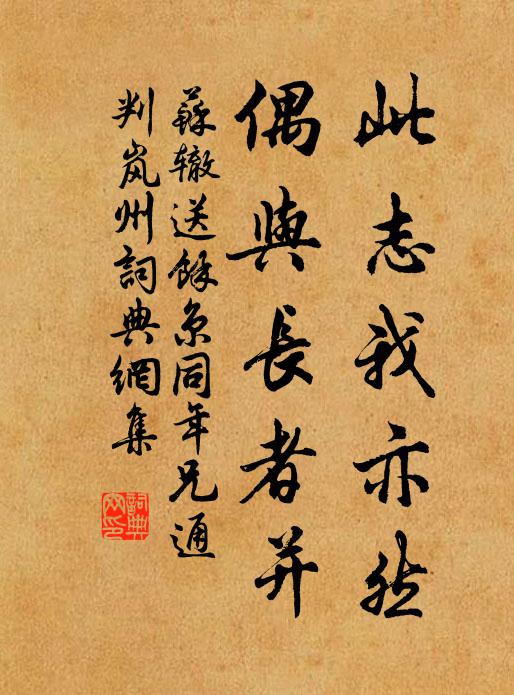 此志我亦然
偶與長者并
蘇辙送餘京同年兄通
判岚州詞典網集
詞典網印